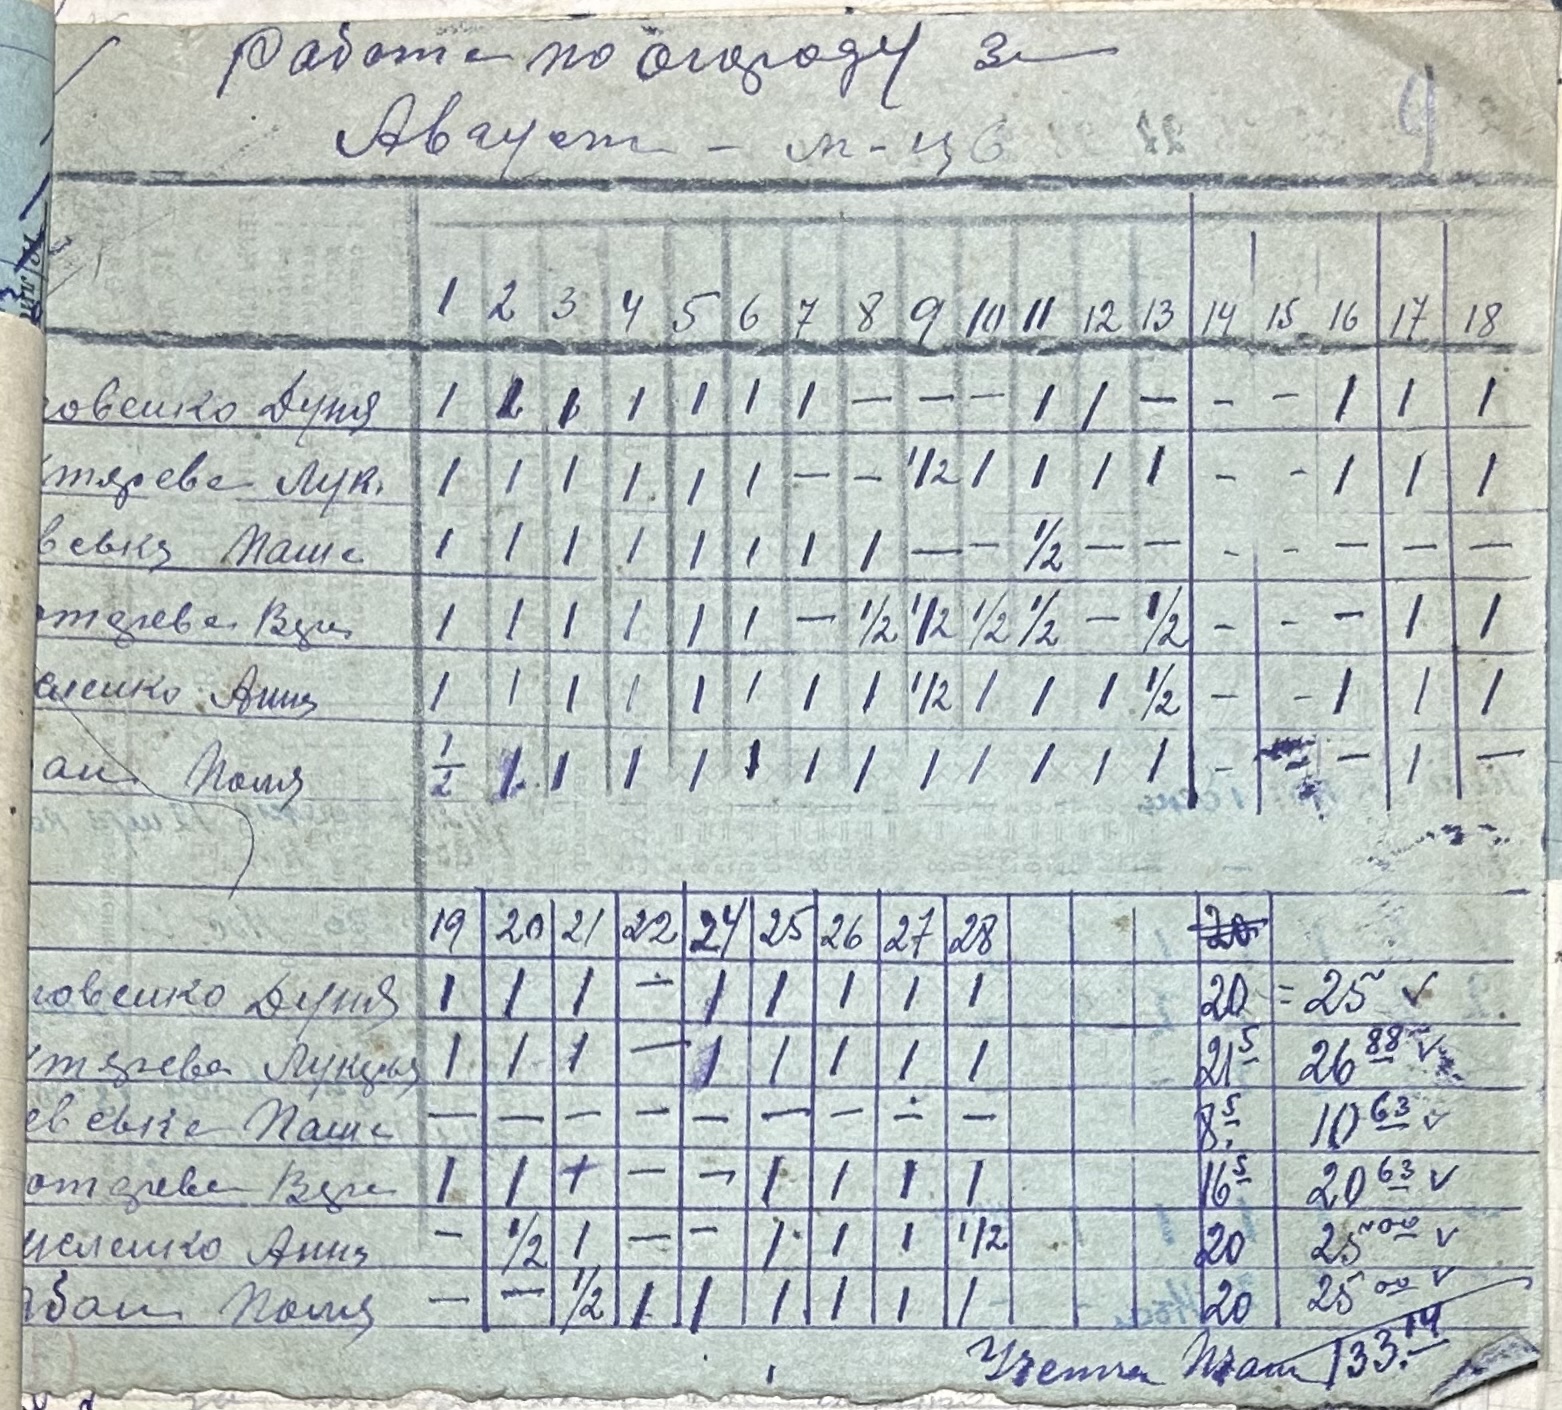 Работа по огороду за
Август - м-ц
1 2 3 4 5 6 7 8 9 10 11 12 13 14 15 16 17 18
говенко Дуня 1 1 1 1 1 1 1 — — — 1 1 — - - 1 1 1
тярева Лук. 1 1 1 1 1 1 — - 1/2 1 1 1 1 - - 1 1 1
Паша 1 1 1 1 1 1 1 1 — - 1/2 — — - - — — —
отярева Варя 1 1 1 1 1 1 — 1/2 1/2 1/2 1/2 — 1/2 - - — 1 1
еленко Анна 1 1 1 1 1 1 1 1 1/2 1 1 1 1/2 - - 1 1 1
ан Поля 1/2 1 1 1 1 1 1 1 1 1 1 1 1 - — 1 —
19 20 21 22 24 25 26 27 28 20
говенко Дуня 1 1 1 — 1 1 1 1 1 20 = 25 ✓
тярева Лукерья 1 1 1 — 1 1 1 1 1 21 5 26 88 ✓
Паша — — — — — — — — — 8 5 10 63 ✓
отярева Варя 1 1 1 — — 1 1 1 1 16 5 20 63 ✓
еленко Анна — 1/2 1 — — 1 1 1 1/2 20 25 00 ✓
бан Поля — — 1/2 1 1 1 1 1 1 20 25 00 ✓
133.14